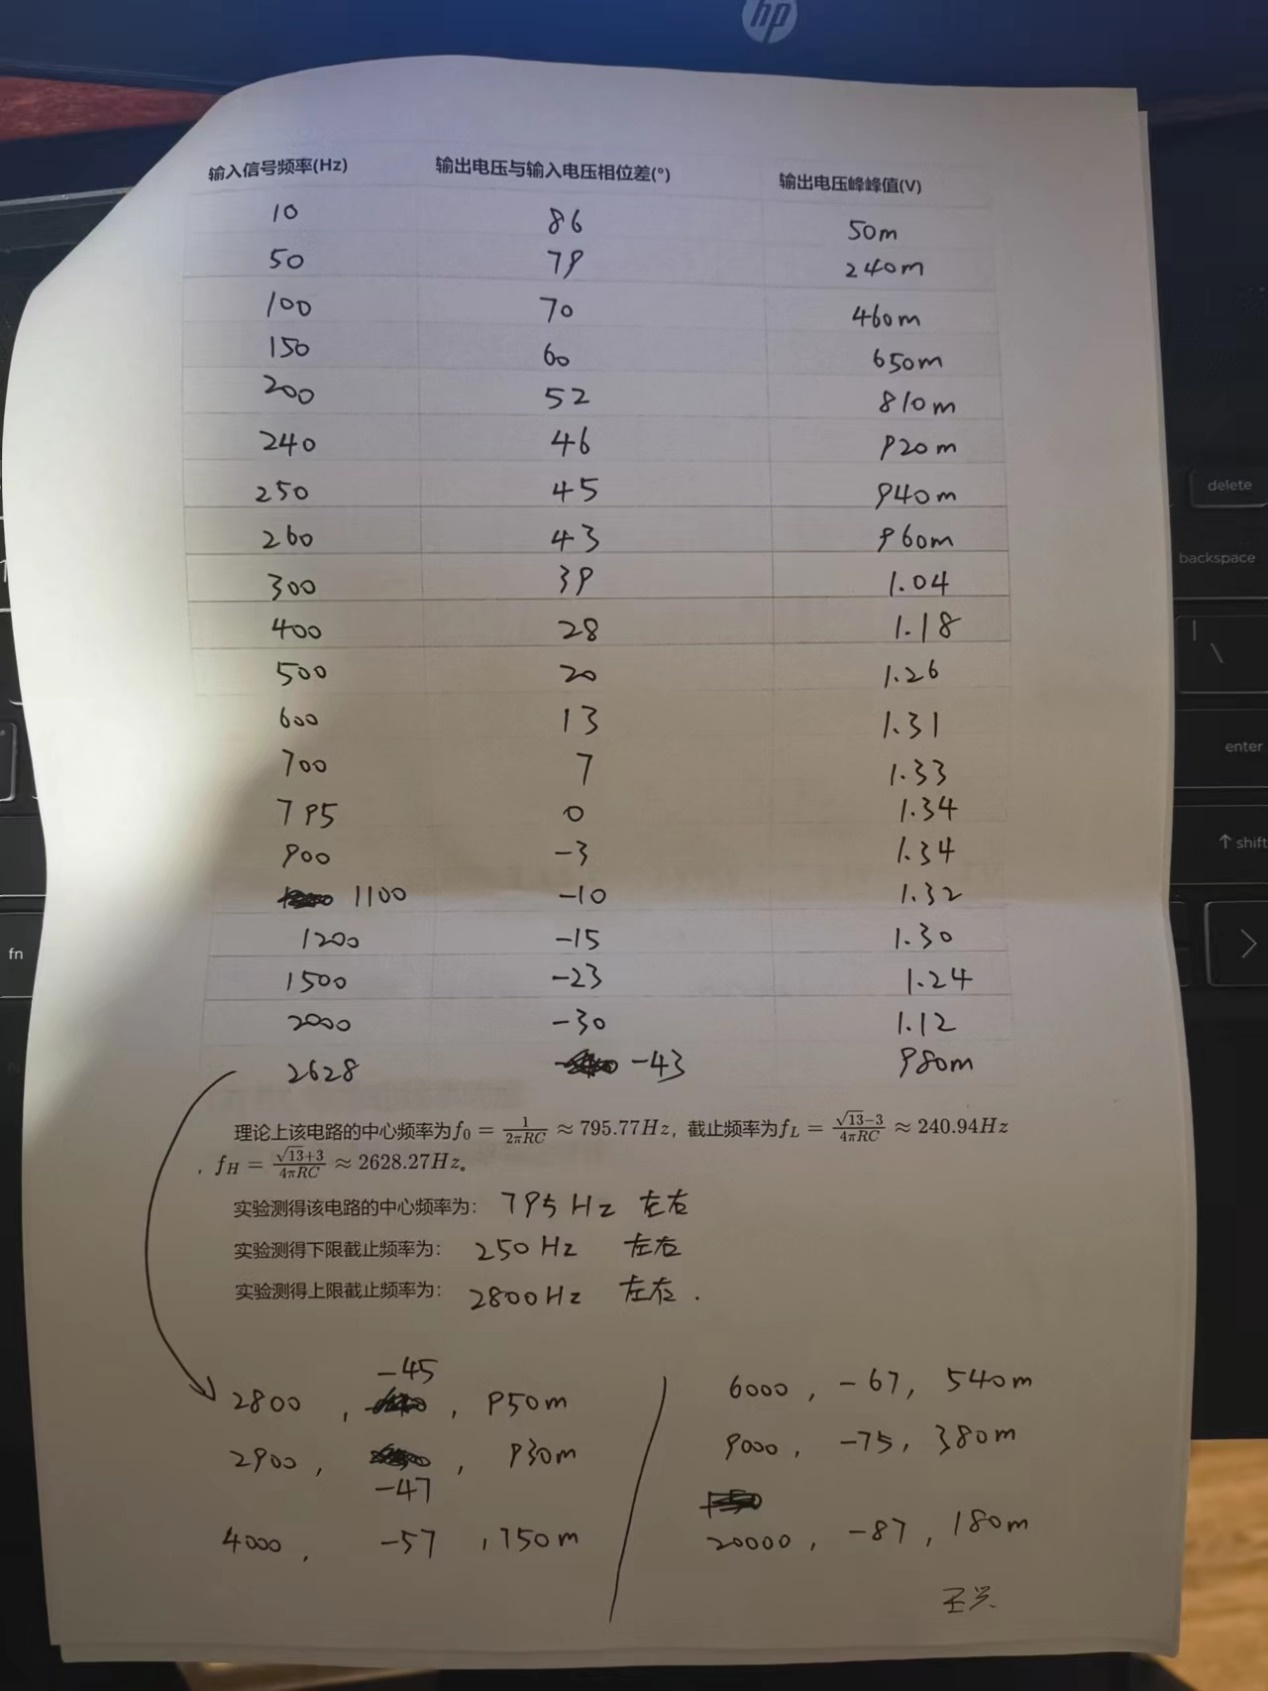 hp
输入信号频率(Hz) 输出电压与输入电压相位差(°) 输出电压峰峰值(V)
10 86 50m
50 79 240m
100 70 460m
150 60 650m
200 52 810m
240 46 920m
250 45 940m
260 43 960m
300 39 1.04
400 28 1.18
500 20 1.26
600 13 1.31
700 7 1.33
795 0 1.34
900 -3 1.34
1100 -10 1.32
1200 -15 1.30
1500 -23 1.24
2000 -30 1.12
2628 -43 980m
理论上该电路的中心频率为f₀ = 1/(2πRC) ≈ 795.77Hz，截止频率为f_L = (√13-3)/(4πRC) ≈ 240.94Hz
，f_H = (√13+3)/(4πRC) ≈ 2628.27Hz。
实验测得该电路的中心频率为： 795Hz 左右
实验测得下限截止频率为： 250Hz 左右
实验测得上限截止频率为： 2800Hz 左右.
2800, -45, 950m
2900, -47, 930m
4000, -57, 750m
6000, -67, 540m
9000, -75, 380m
20000, -87, 180m
delete
backspace
|
\
enter
↑ shift
fn